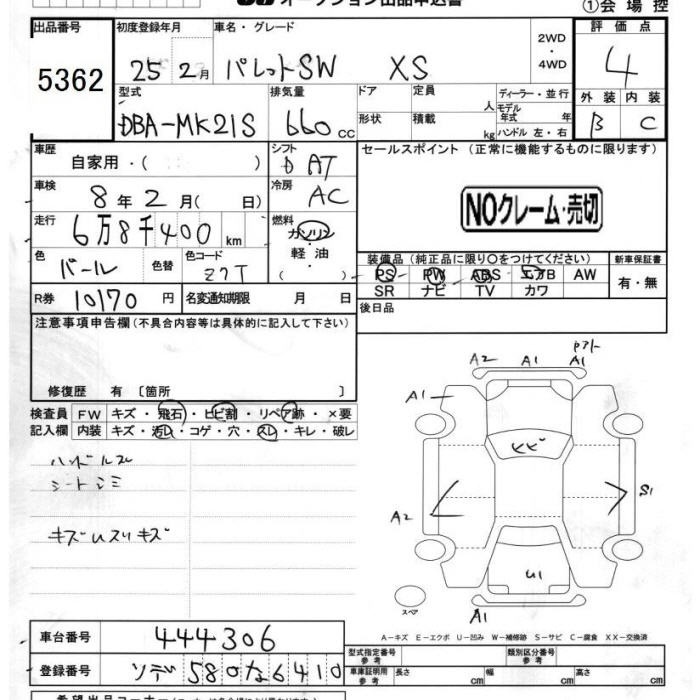 オークション出品申込書
①会場控
出品番号 5362
初度登録年月 25 2月
車名・グレード パレットSW XS
2WD・4WD
評価点 4
外装 B 内装 C
型式 DBA-MK21S
排気量 660 cc
ドア 形状
定員 人 積載 kg
ディーラー・並行
モデル年式 年式
ハンドル 左・右
車歴 自家用・( )
シフト D AT
車検 8年2月( 日)
冷房 AC
走行 6万8千400 km
燃料 ガソリン・軽油・( )
色 パール 色替 色コード Z7T
R券 10170円
名変通知期限 月 日
セールスポイント (正常に機能するものに限ります)
NOクレーム・売切
装備品 (純正品に限り○をつけてください)
新車保証書
PS PW ABS エアB AW
SR ナビ TV カワ
有・無
後日品
注意事項申告欄(不具合内容等は具体的に記入して下さい)
修復歴 有 [箇所 ]
検査員記入欄
FW キズ・飛石・ヒビ割・リペア跡・×要
内装 キズ・汚レ・コゲ・穴・スレ・キレ・破レ
ハンドルスレ
シートシミ
キズUスリキズ
A2 A1 A1
A1
ヒビ
A2
S1
U1
A1
スペア
A-キズ E-エクボ U-凹み W-補修跡 S-サビ C-腐食 XX-交換済
車台番号 444306
登録番号 ソデ580な6410
型式指定番号 参考
類別区分番号 参考
車庫証明用 参考 長さ cm 幅 cm 高さ cm